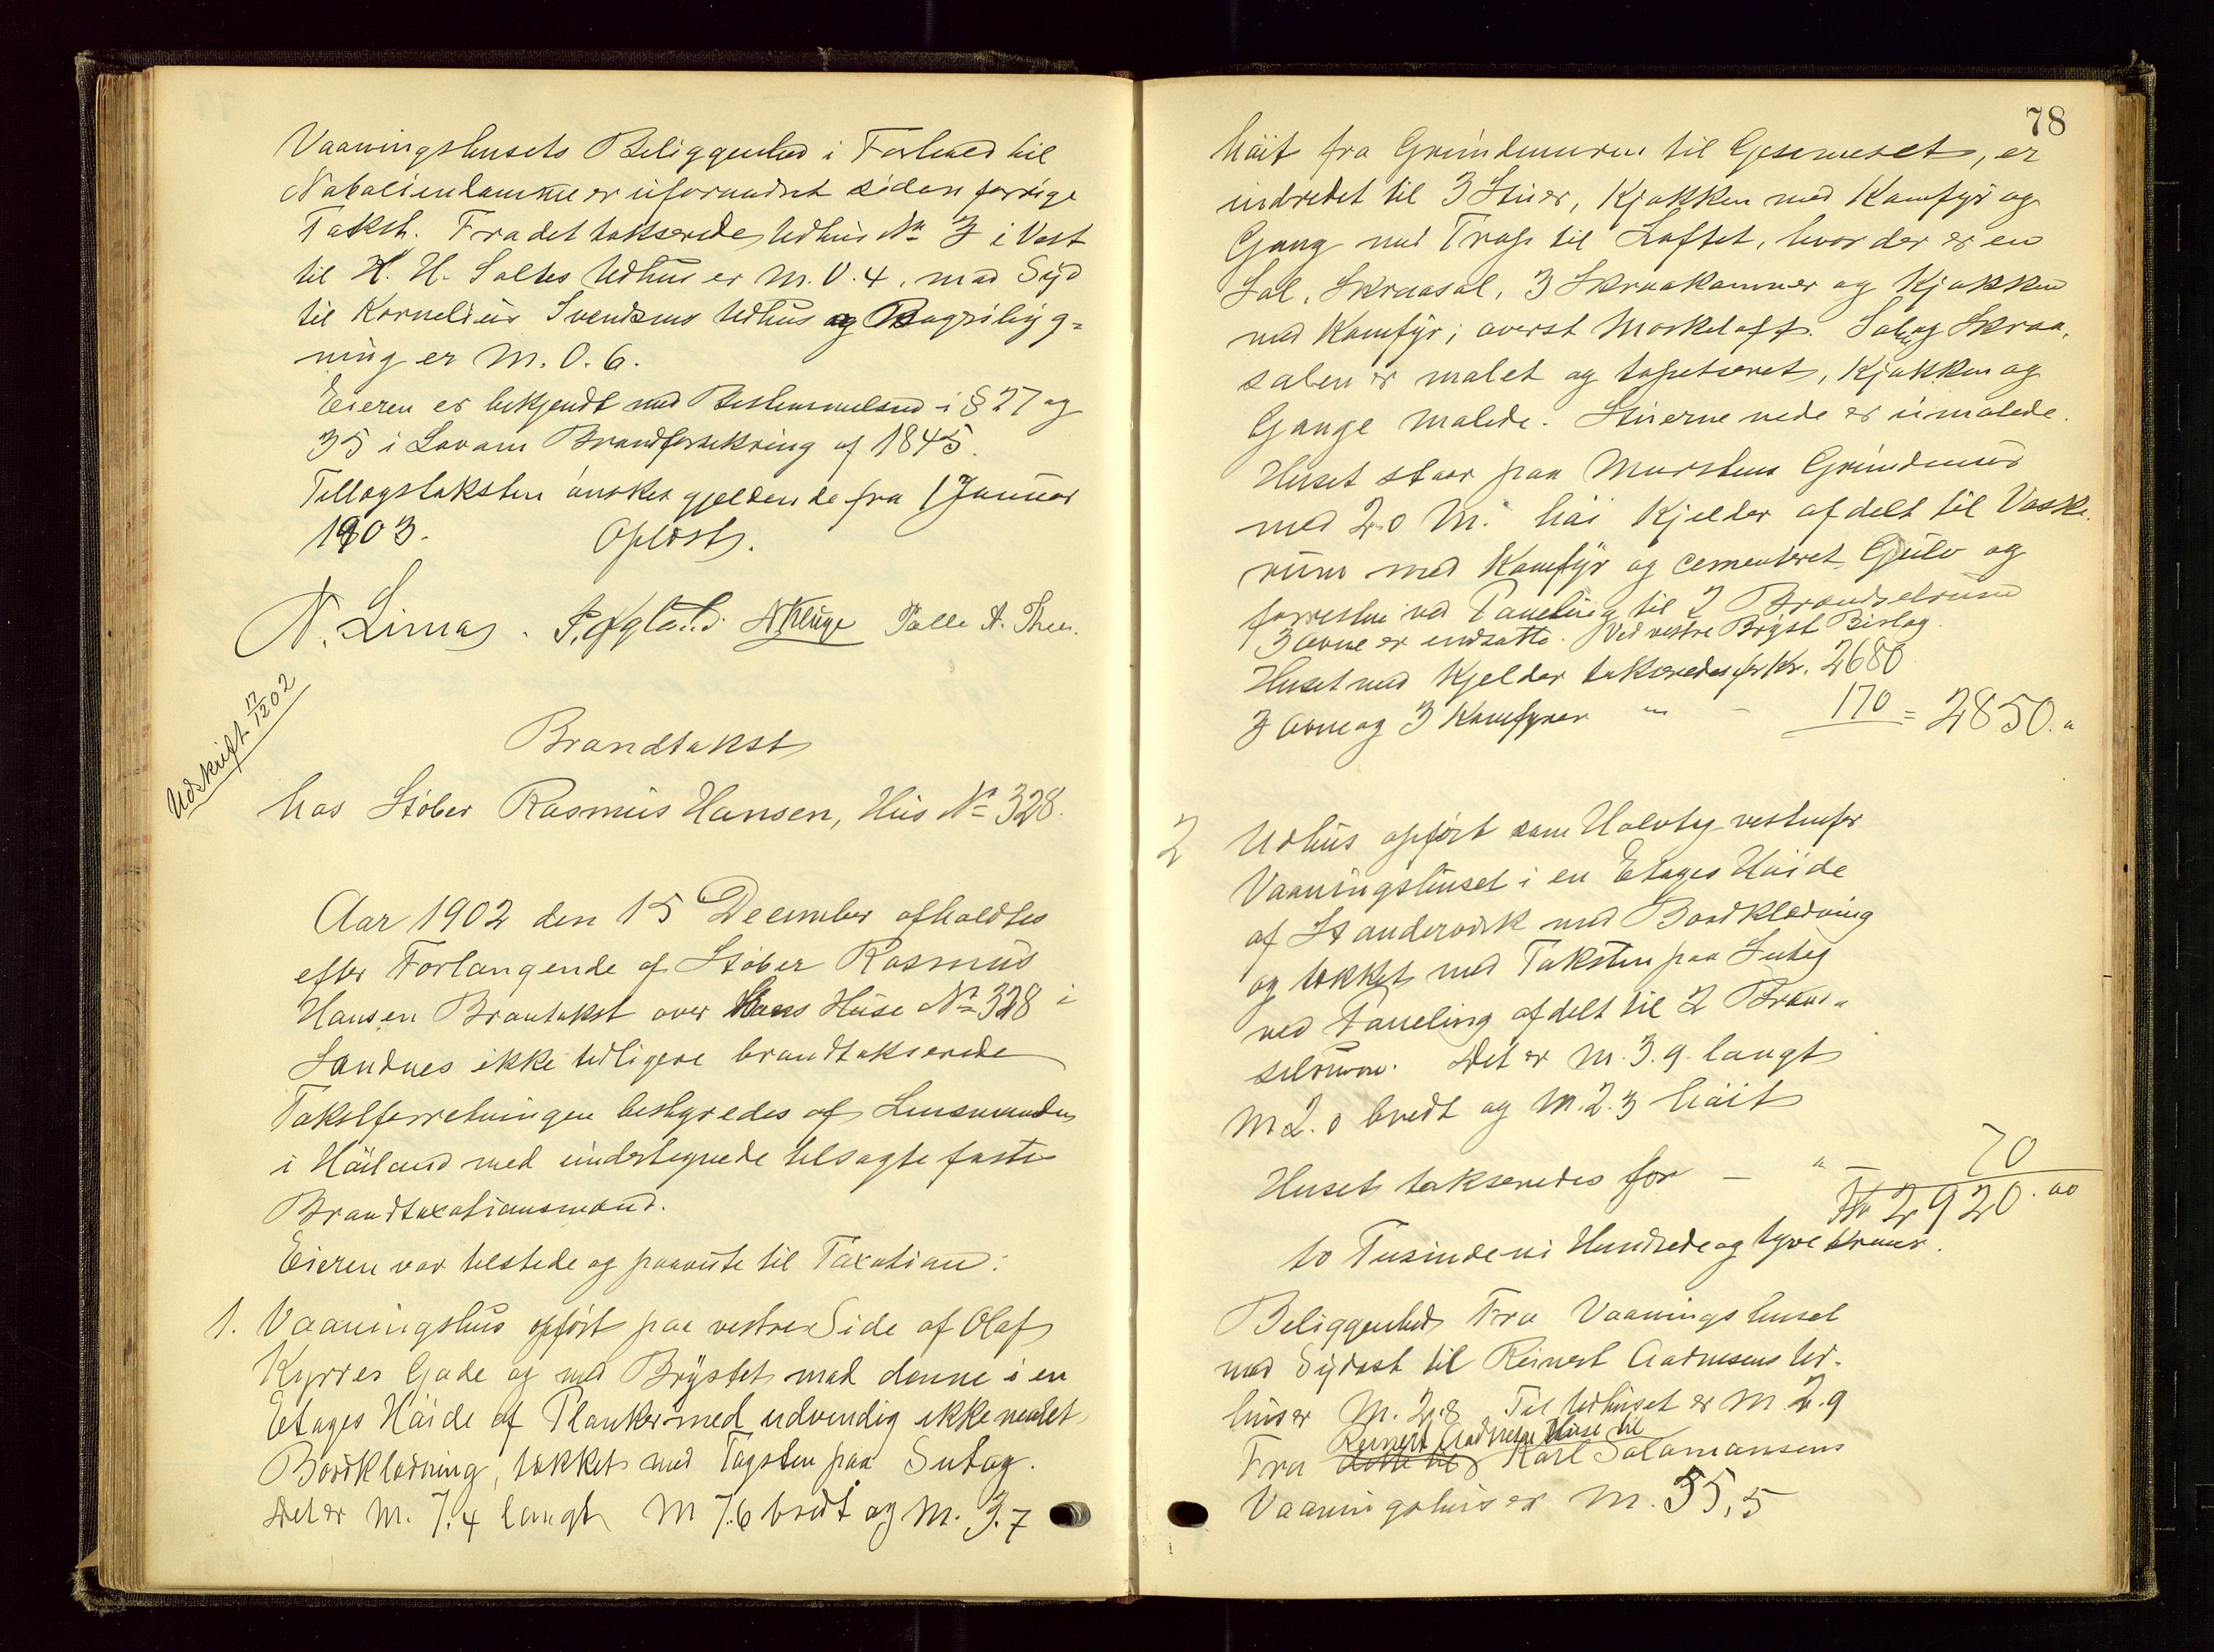 Vaaningshusets Beliggenhed i Forhold til
Naboeiendomme er uforandret siden forrige
Takst. Fra det takserede Udhus No 3 i Vest
til H. H. Saltes Udhus er M. 0.4. mod Syd
til Kornelius Svendsens Udhus og Bagrilig g-
ning er M. 0.6.
Eieren er bekjendt med Bestemmelsene i § 27 og
35 i Lov om Brandforsekring af 1845.
Tillægstaksten ønskes gjeldende fra 1 Januar
1903. Oplæst.
N. Lima. A Kluge Palle A. Thu.
Udskrift 17/12 02
Brandtakst
hos Støber Rasmus Hansen, Hus No 328.
Aar 1902 den 15 December afholdtes
efter Forlangende af Støber Rasmus
Hansen Brantakst over Hans Huse No 328 i
Sandnes ikke tidligere brandtakserede
Takstforretningen bestyredes af Lensmanden
i Høiland med undertegnede tilsagte faste
Brandtaxationsmænd.
Eieren var tilstede og paaviste til Taxation:
1. Vaaningshus opført paa vestre Side af Olaf
Kyrres Gade og med Brystet mod denne i en
Etages Høide af Planker med udvendig ikke malet
Bordklædning, tækket med Tagsten paa Sutag.
Det er M. 7.4 langt M 7.6 bredt og M. 3.7
78
høit fra Grundmuren til Gesemset, er
indredet til 3 Stuer, Kjøkken med Komfyr og
Gang med Trap til Loftet, hvor der er en
Sal, Skraasal, 3 Skraakammer og Kjøkken
med Komfyr; øverst Mørkeloft. Salen og Skraa-
salen er malet og tapetseret, Kjøkken og
Gange malede. Stuerne nede er umalede.
Huset staar paa Murstens Grundmur
med 2.0 M. høi Kjelder afdelt til Vaske-
rum med Komfyr og cementeret Gulv og
forresten ved Paneling til 2 Brændselrum
3 Ovne er indsatte. Ved vestre Bryst Bislag.
Huset med Kjelder takseredes for Kr. 2680
3 Ovne og 3 Komfyrer " - 170 = 2850."
2 Udhus opført som Halvtag vestenfor
Vaaningshuset i en Etages Høide
af Standerværk med Bordklædning
og tækket med Taksten paa Sutag
ved Paneling afdelt til 2 Brænd-
selrum. Det er M. 3.9. langt
M 2.0 bredt og M. 2.3 høit
Huset takseredes for - " - 70
Kr 2920.00
to Tusinde ni Hundrede og tyve Kroner.
Beliggenhed Fra Vaaningshuset
mod Sydost til Reinert Aadnesens Ud-
hus er M. 2.8 Til Udhuset er M 2.9
Reinert Aadnesens Huse til
Fra dette til Karl Salamonsens
Vaaningshus er M. 35,5